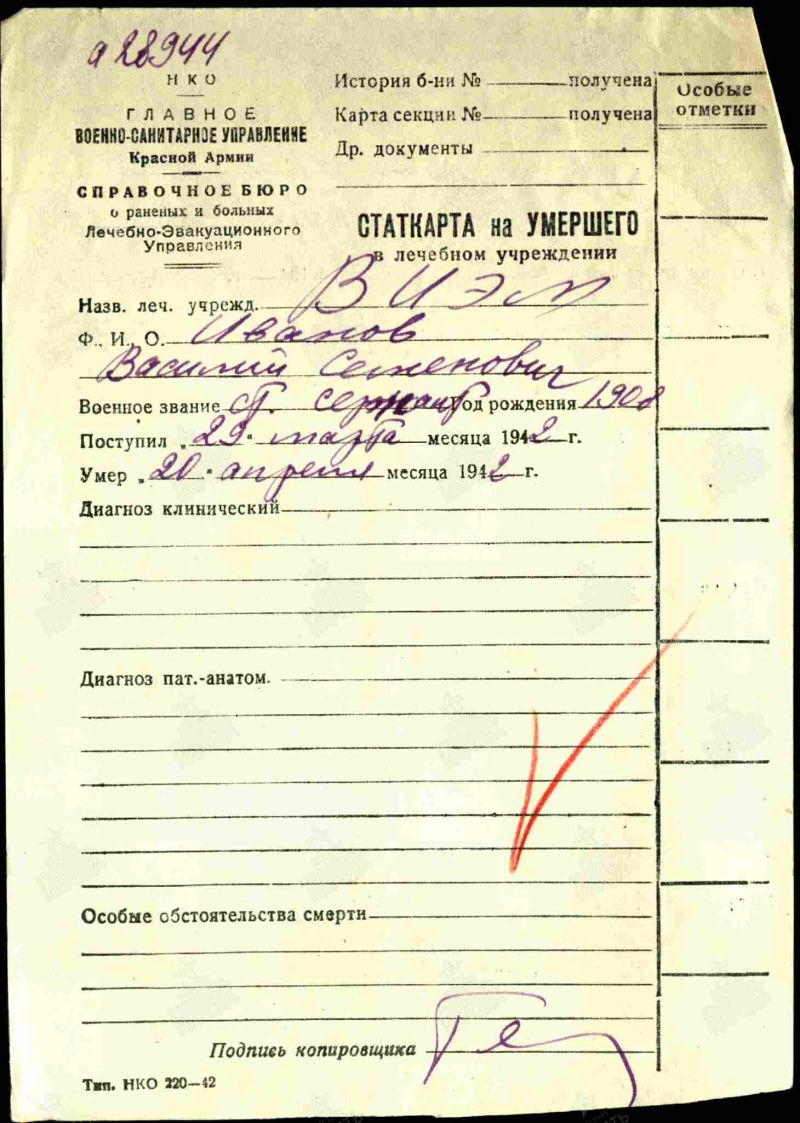 а 28944
НКО
ГЛАВНОЕ
ВОЕННО-САНИТАРНОЕ УПРАВЛЕНИЕ
Красной Армии
СПРАВОЧНОЕ БЮРО
о раненых и больных
Лечебно-Эвакуационного
Управления
История б-ни № получена
Карта секции № получена
Др. документы
Особые
отметки
СТАТКАРТА на УМЕРШЕГО
в лечебном учреждении
Назв. леч. учрежд. ВИЭМ
Ф., И., О. Иванов
Василий Семенович
Военное звание ст. сержант Год рождения 1908
Поступил „29" марта месяца 1942 г.
Умер „20" апреля месяца 1942 г.
Диагноз клинический
Диагноз пат.-анатом.
Особые обстоятельства смерти
Подпись копировщика
Тип. НКО 220—42